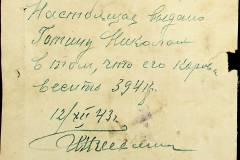 Настоящая выдана
Готину Николаю
в том, что его корова
весить 394 кг.
12/XII 43 г.